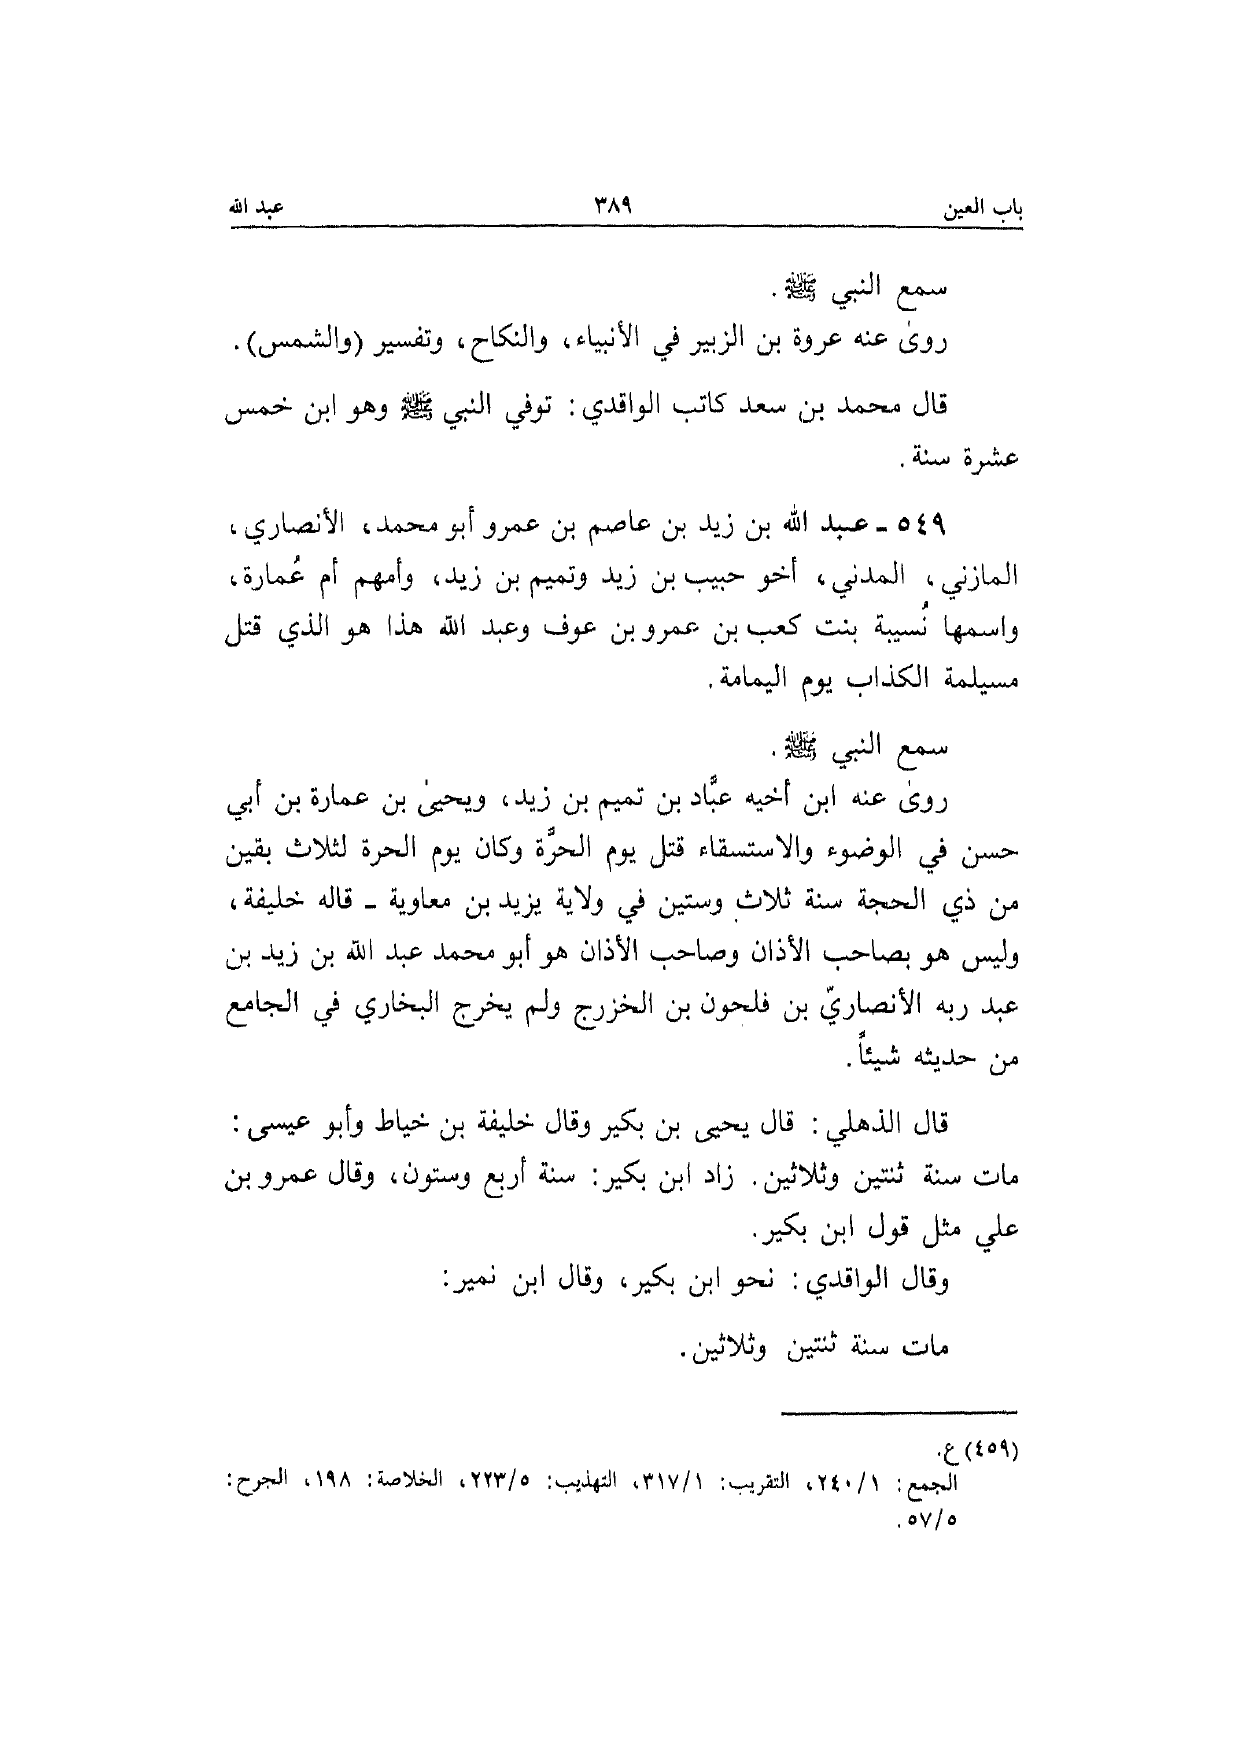 باب العين ٣٨٩ عبد الله
سمع النبي ﷺ.
روىٰ عنه عروة بن الزبير في الأنبياء، والنكاح، وتفسير (والشمس).
قال محمد بن سعد كاتب الواقدي: توفي النبي ﷺ وهو ابن خمس
عشرة سنة.
٥٤٩ ـ عبد الله بن زيد بن عاصم بن عمرو أبو محمد، الأنصاري،
المازني، المدني، أخو حبيب بن زيد وتميم بن زيد، وأمهم أم عُمارة،
واسمها نُسيبة بنت كعب بن عمرو بن عوف وعبد الله هذا هو الذي قتل
مسيلمة الكذاب يوم اليمامة.
سمع النبي ﷺ.
روىٰ عنه ابن أخيه عبَّاد بن تميم بن زيد، ويحيىٰ بن عمارة بن أبي
حسن في الوضوء والاستسقاء قتل يوم الحرَّة وكان يوم الحرة لثلاث بقين
من ذي الحجة سنة ثلاث وستين في ولاية يزيد بن معاوية ـ قاله خليفة،
وليس هو بصاحب الأذان وصاحب الأذان هو أبو محمد عبد الله بن زيد بن
عبد ربه الأنصاريّ بن فلحون بن الخزرج ولم يخرج البخاري في الجامع
من حديثه شيئاً.
قال الذهلي: قال يحيى بن بكير وقال خليفة بن خياط وأبو عيسى:
مات سنة ثنتين وثلاثين. زاد ابن بكير: سنة أربع وستون، وقال عمرو بن
علي مثل قول ابن بكير.
وقال الواقدي: نحو ابن بكير، وقال ابن نمير:
مات سنة ثنتين وثلاثين.
(٤٥٩) ع.
الجمع: ٢٤٠/١، التقريب: ٣١٧/١، التهذيب: ٢٢٣/٥، الخلاصة: ١٩٨، الجرح:
٥٧/٥.